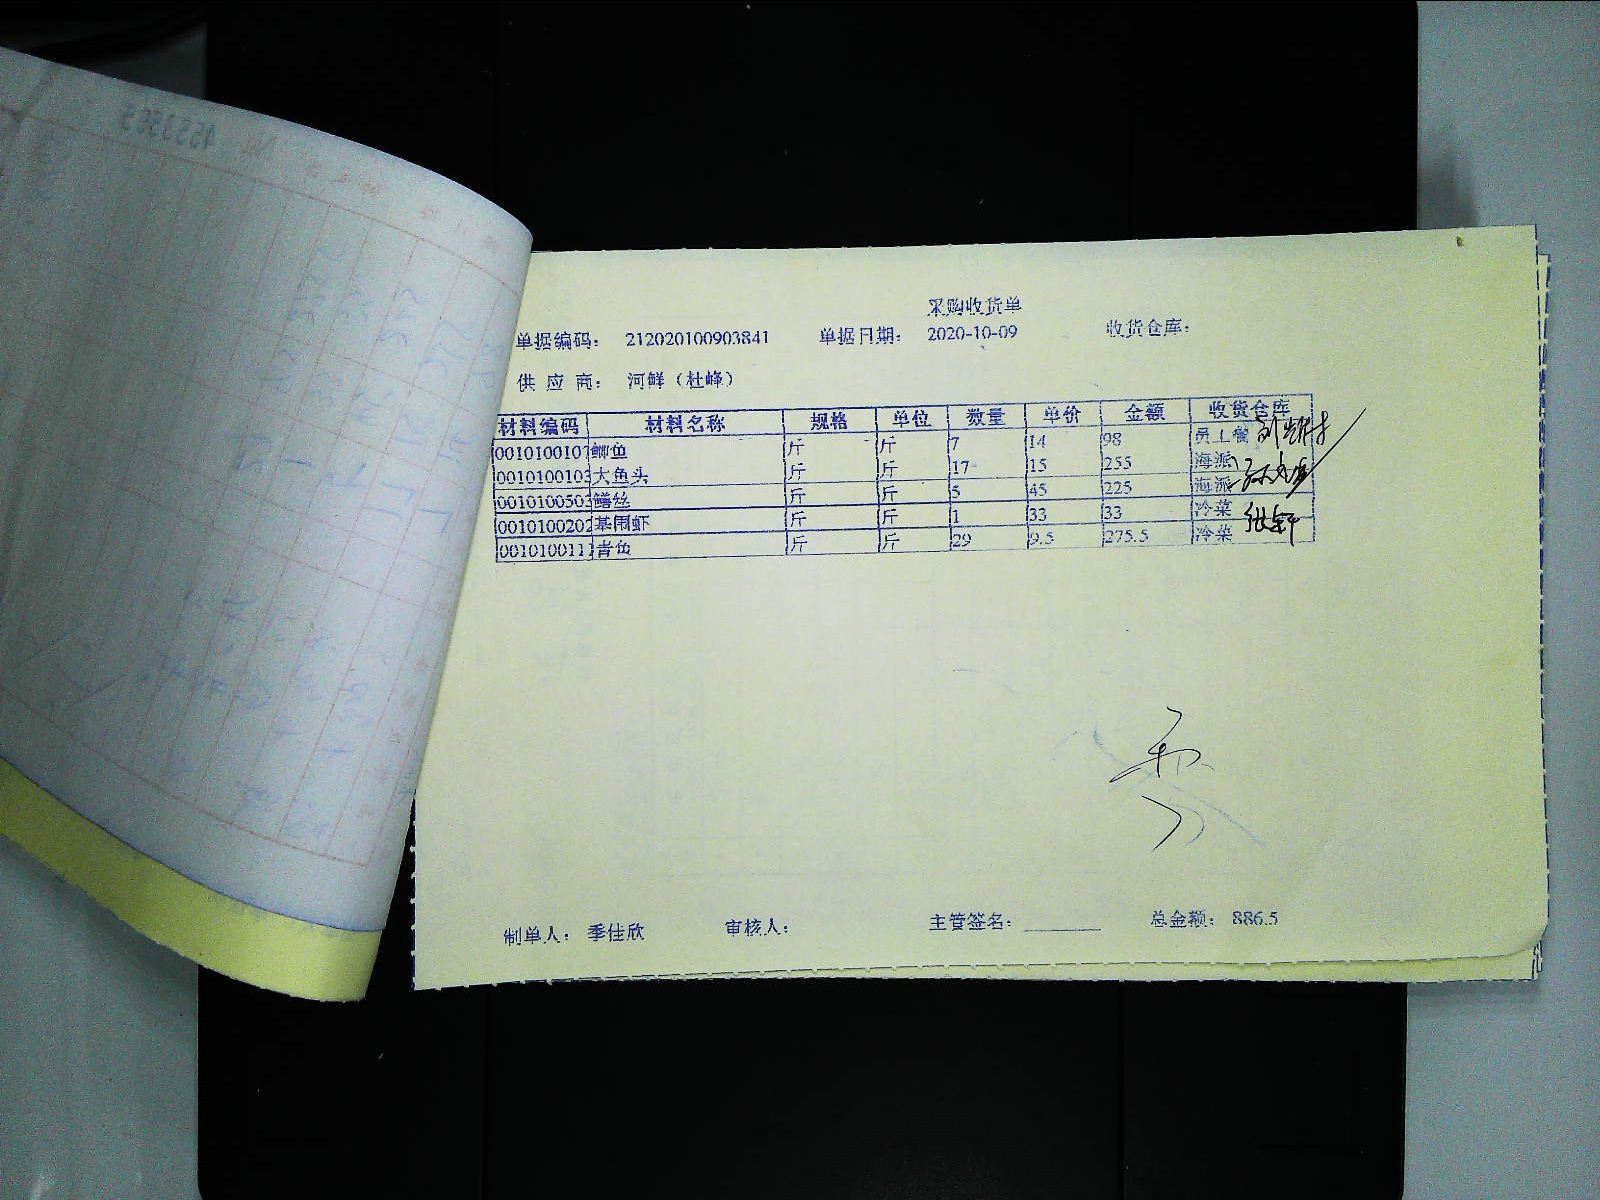 采购收货单
单据编码： 212020100903841 单据日期： 2020-10-09 收货仓库：
供 应 商： 河鲜（杜峰）
材料编码 材料名称 规格 单位 数量 单价 金额 收货仓库
0010100107 鲫鱼 斤 斤 7 14 98 员工餐
0010100103 大鱼头 斤 斤 17 15 255 海派
0010100503 鳝丝 斤 斤 5 45 225 海派
0010100202 基围虾 斤 斤 1 33 33 冷菜
0010100111 青鱼 斤 斤 29 9.5 275.5 冷菜
制单人： 季佳欣 审核人： 主管签名： 总金额： 886.5